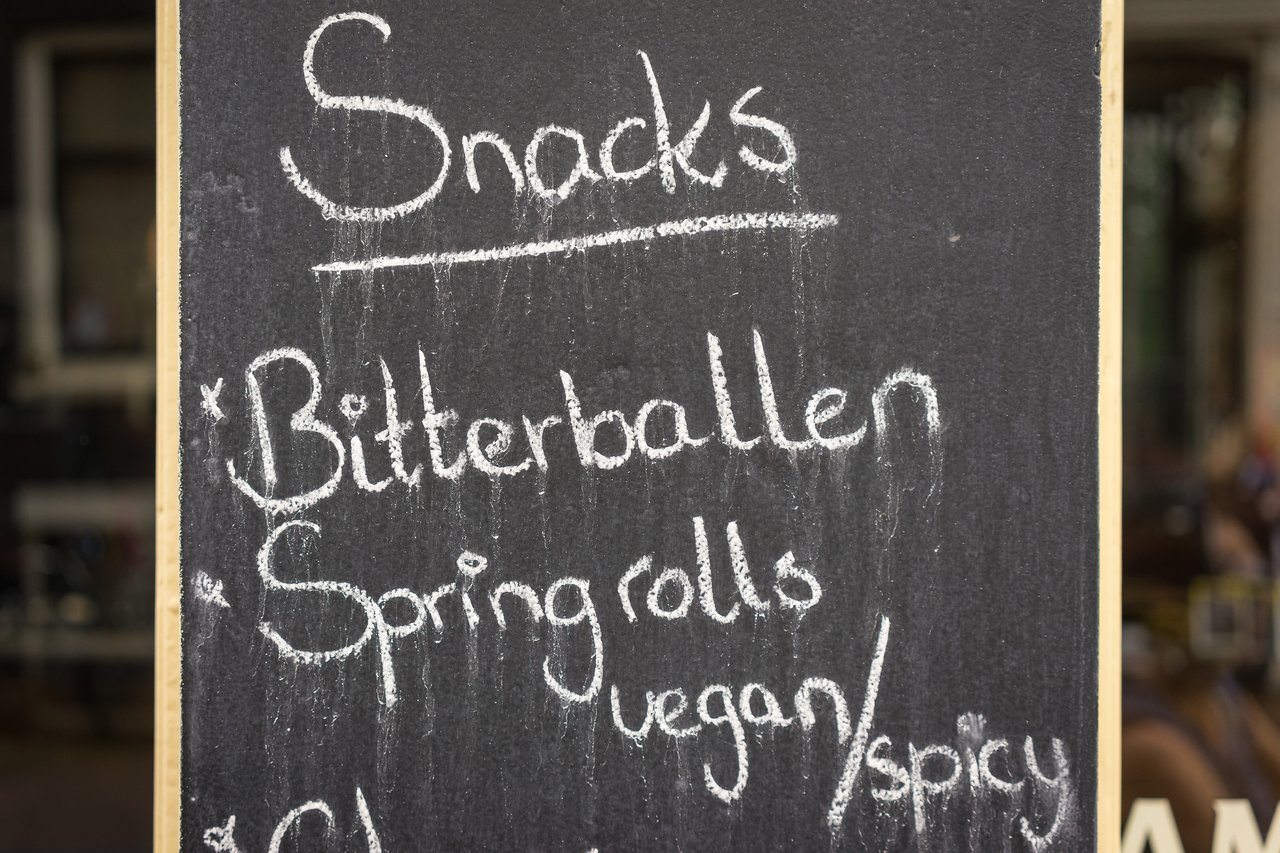 Snacks
* Bitterballen
* Spring rolls
vegan/spicy
AM